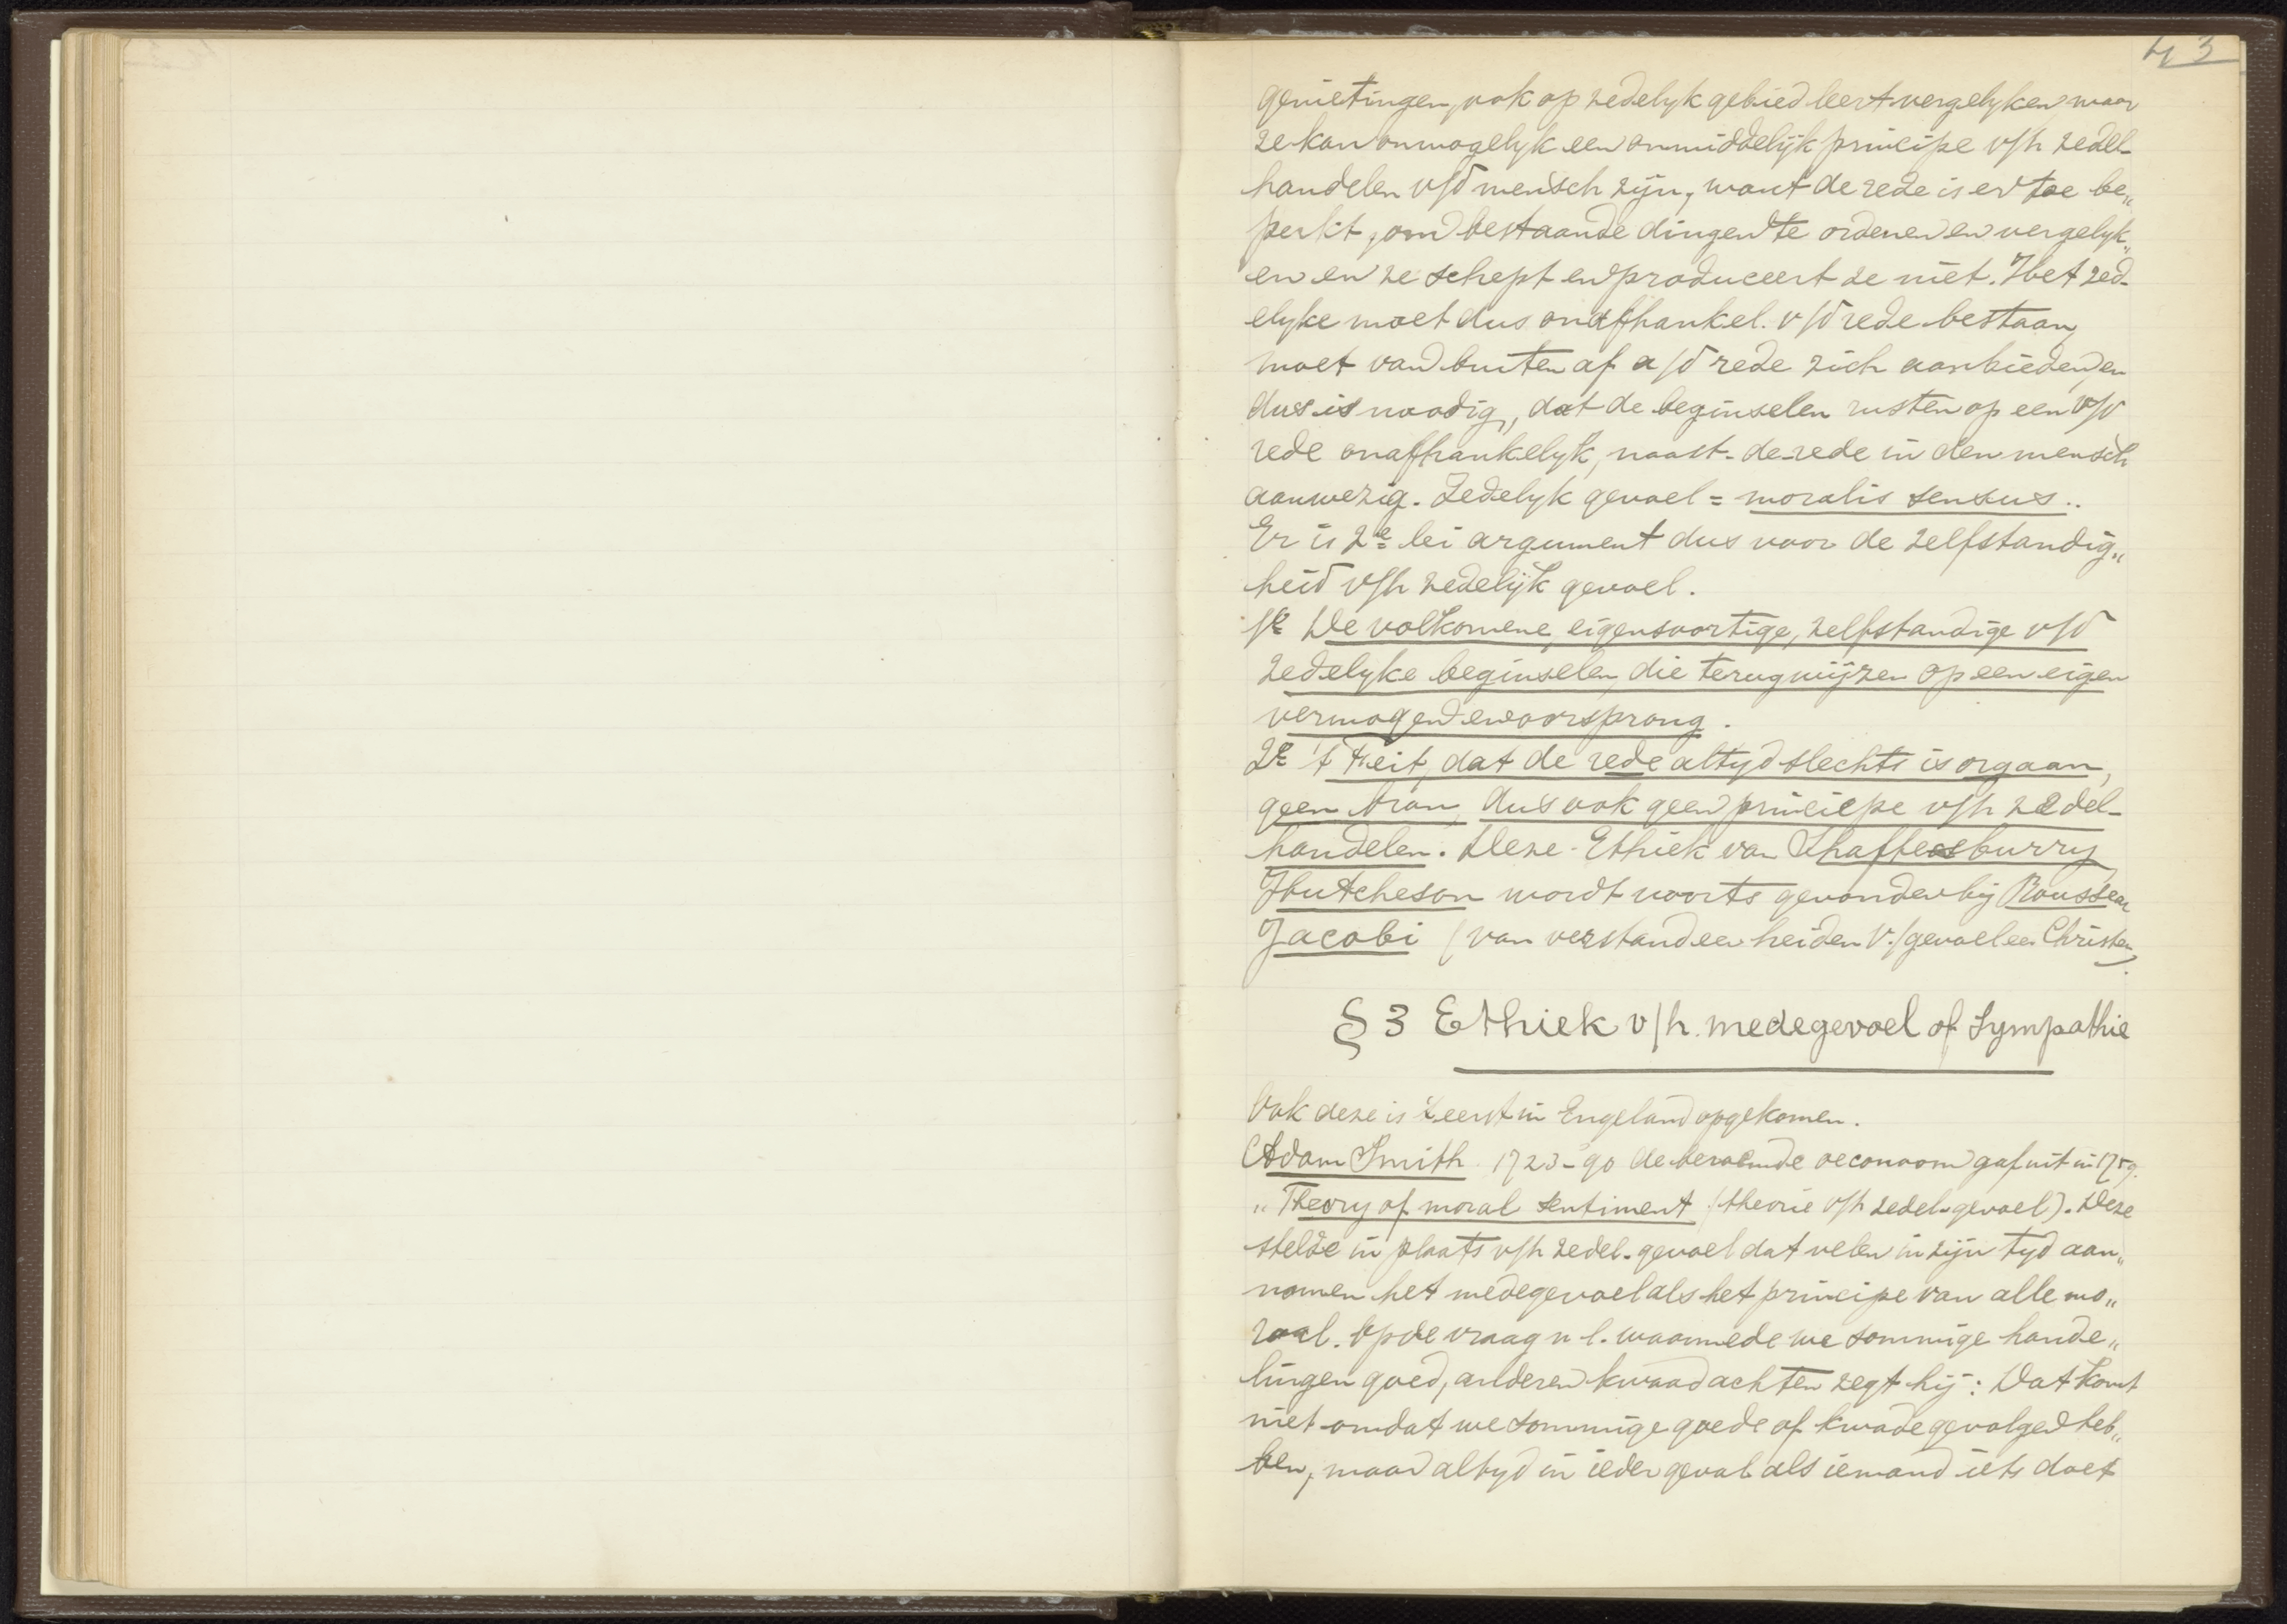 43
genietingen, ook op zedelyk gebied leert vergelyken maar
ze kan onmogelyk een onmiddelijk principe v/h zedel-
handelen v/d mensch zijn, want de rede is er toe be„
perkt, om bestaande dingen te ordenen en vergelyk„
en en ze schept en produceert ze niet. Het zed-
elyke moet dus onafhankel. v/d rede bestaan,
moet van buiten af a/d rede zich aanbieden, en
dus is noodig, dat de beginselen rusten op een v/d
rede onafhankelyk, naast-de-rede in den mensch
aanwezig. Zedelyk gevoel = moralis sensus..
Er is 2e lei argument dus voor de zelfstandig„
heid v/h zedelijk gevoel.
1e De volkomene, eigensoortige, zelfstandige v/d
zedelyke beginselen, die terugwijzen op een eigen
vermogen en oorsprong.
2e 't Feit, dat de rede altyd slechts is orgaan,
geen bron, dus ook geen principe v/h zedel-
handelen. Deze Ethiek van Shaftesburry
Hutcheson wordt voorts gevonden bij Rousseau
Jacobi (van verstand een heiden v./gevoel een Christen).
§ 3 Ethiek v/h. medegevoel of Sympathie
Ook deze is 't eerst in Engeland opgekomen.
Adam Smith 1723-90 de beroemde oeconoom gaf uit in 1759.
„Theory of moral sentiment (theorie v/h zedel-gevoel). Deze
stelde in plaats v/h zedel-gevoel dat velen in zijn tyd aan„
nomen het medegevoel als het principe van alle mo„
raal. Op de vraag n.l. waarmede we sommige hande„
lingen goed, anderen kwaad achten zegt hij: Dat komt
niet omdat we sommige goede of kwade gevolgen heb„
ben, maar altyd in ieder geval als iemand iets doet